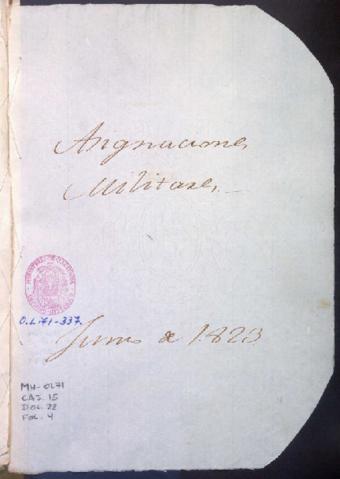 Asignaciones
Militares
O.L. 71-337.
Junio de 1.823
MH-OL71
CAJ. 15
DOC. 22
FOL. 4